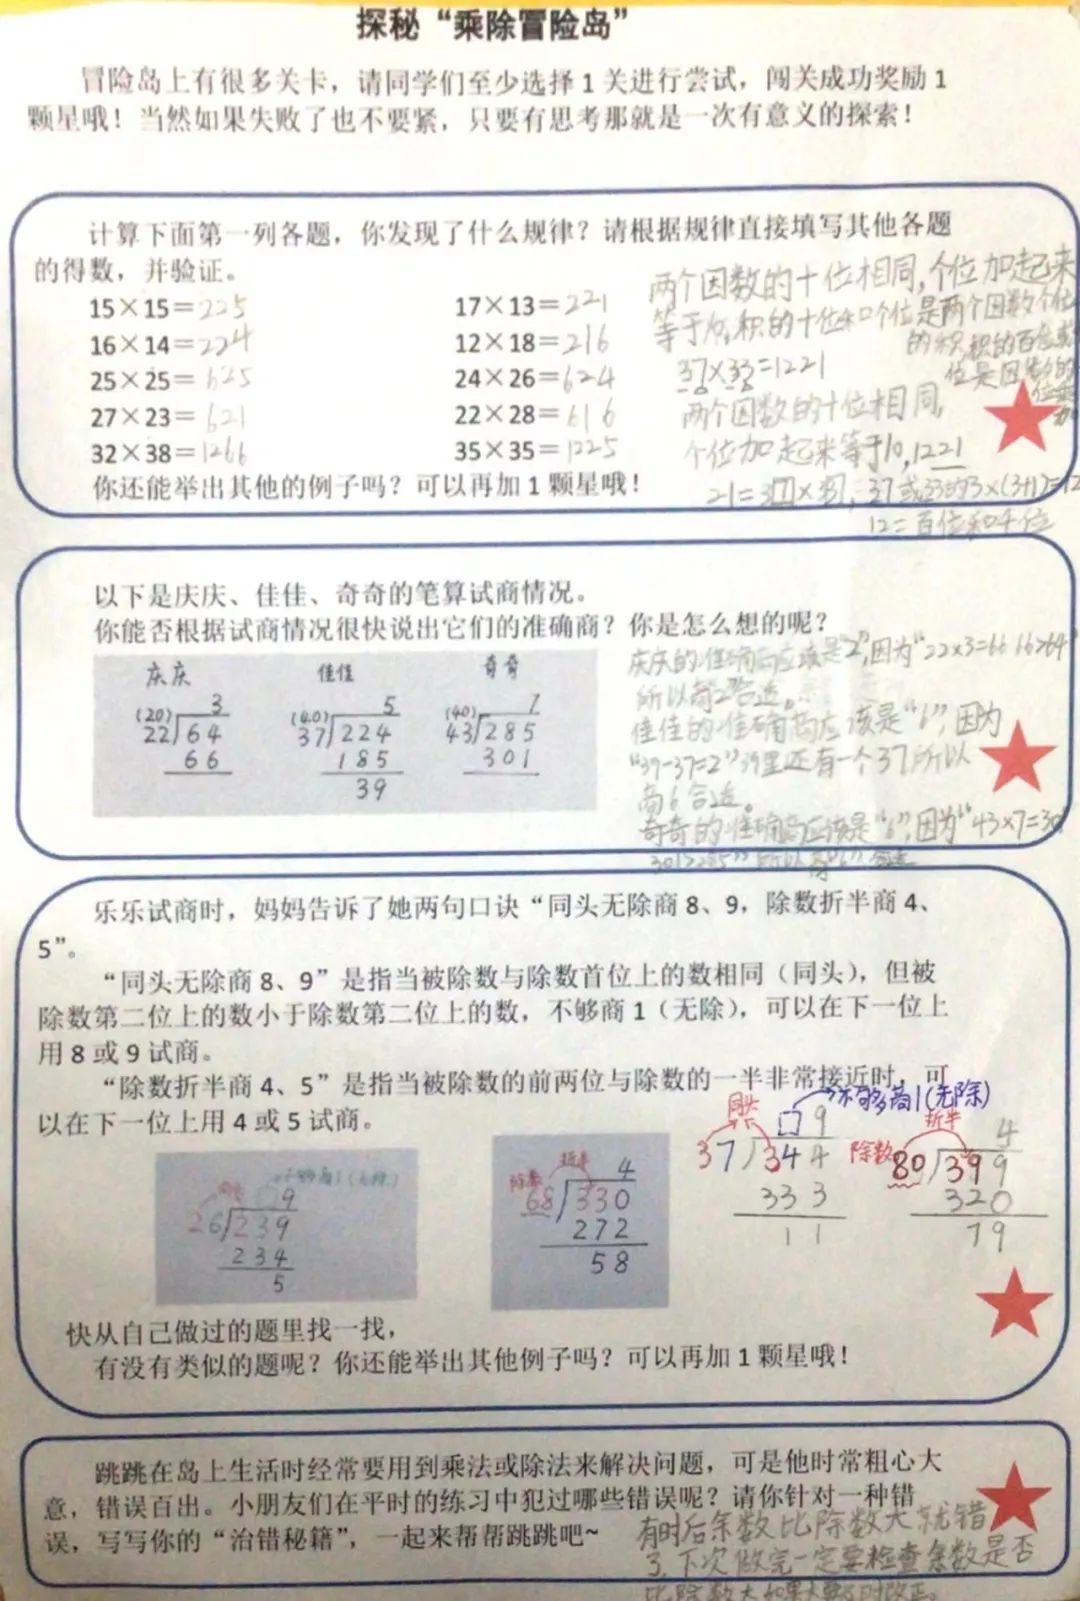 探秘“乘除冒险岛”
冒险岛上有很多关卡，请同学们至少选择1关进行尝试，闯关成功奖励1
颗星哦！当然如果失败了也不要紧，只要有思考那就是一次有意义的探索！
计算下面第一列各题，你发现了什么规律？请根据规律直接填写其他各题
的得数，并验证。
15×15=225
17×13=221
16×14=224
12×18=216
25×25=625
24×26=624
27×23=621
22×28=616
32×38=1266
35×35=1225
两个因数的十位相同,个位加起来
等于10,积的十位和个位是两个因数个位
的积,积的百位或
位是因数的
37×33=1221
两个因数的十位相同,
个位加起来等于10,1221
37或33的3×(3+1)=12
12=百位和千位
你还能举出其他的例子吗？可以再加1颗星哦！
以下是庆庆、佳佳、奇奇的笔算试商情况。
你能否根据试商情况很快说出它们的准确商？你是怎么想的呢？
庆庆 佳佳 奇奇
3 5 7
(20) 22 64 (40) 37 224 (40) 43 285
66 185 301
39
庆庆的准确商应该是“2”,因为“22×3=66 66>64”
所以商2合适。
佳佳的准确商应该是“6”,因为
“39-37=2”39里还有一个37所以
商6合适。
奇奇的准确商应该是“6”,因为“43×7=301
301>285”所以商“6”合适
乐乐试商时，妈妈告诉了她两句口诀“同头无除商8、9，除数折半商4、
5”。
“同头无除商8、9”是指当被除数与除数首位上的数相同（同头），但被
除数第二位上的数小于除数第二位上的数，不够商1（无除），可以在下一位上
用8或9试商。
“除数折半商4、5”是指当被除数的前两位与除数的一半非常接近时，可
以在下一位上用4或5试商。
同头 不够商1(无除)
9
26 239
234
5
除数 折半
4
68 330
272
58
同头 不够商1(无除)
9
37 344
333
11
除数 折半
4
80 399
320
79
快从自己做过的题里找一找，
有没有类似的题呢？你还能举出其他例子吗？可以再加1颗星哦！
跳跳在岛上生活时经常要用到乘法或除法来解决问题，可是他时常粗心大
意，错误百出。小朋友们在平时的练习中犯过哪些错误呢？请你针对一种错
误，写写你的“治错秘籍”，一起来帮帮跳跳吧~
有时后余数比除数大就错
了,下次做完一定要检查余数是否
比除数大如果大要及时改正。